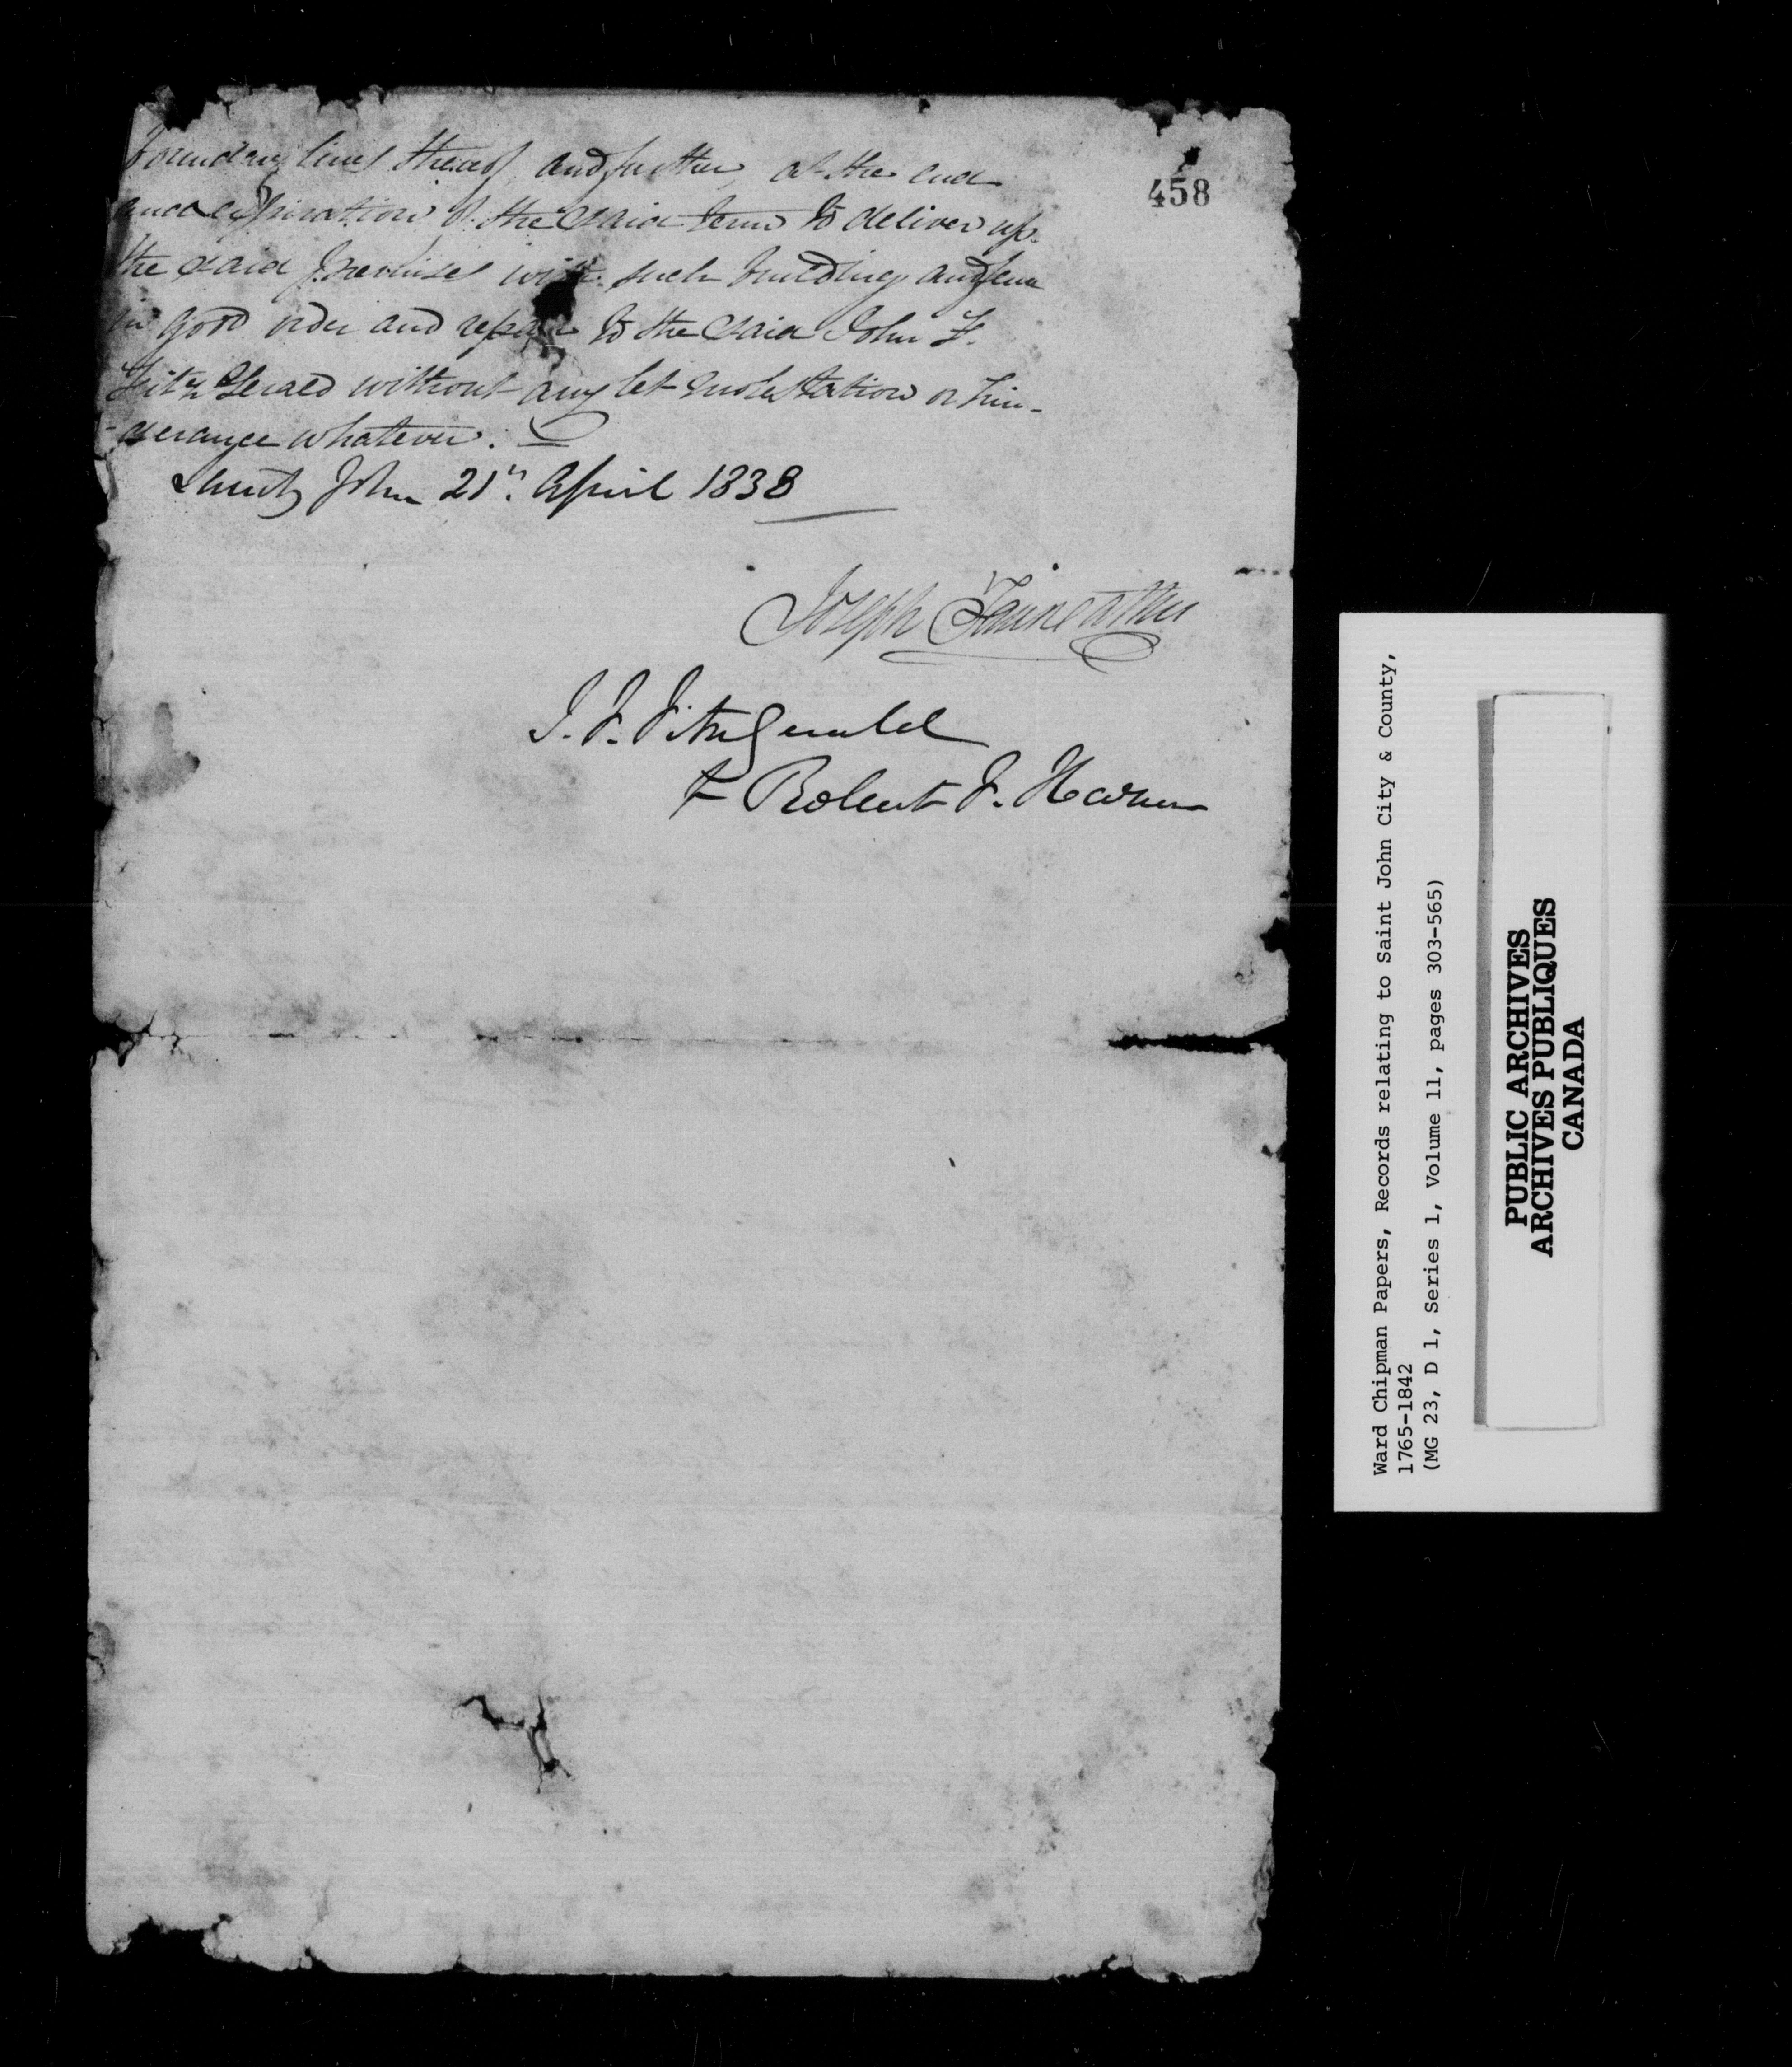 boundary lines thereof, and further, at the end
and expiration of the said term to deliver up
the said premises with such building and fence
in good order and repair to the said John F.
Fitz Gerald without any let molestation or hin-
-derance whatever.
Saint John 21st. April 1838
Joseph Fairweather
J. F. FitzGerald
Robert F. Hazen
458
Ward Chipman Papers, Records relating to Saint John City & County,
1765-1842
(MG 23, D 1, Series 1, Volume 11, pages 303-565)
PUBLIC ARCHIVES
ARCHIVES PUBLIQUES
CANADA